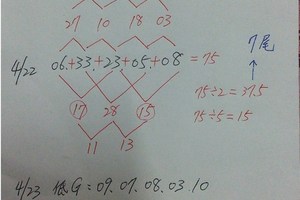 27 10 18 03
7尾
4/22 06+33+23+05+08 = 75
75÷2=37.5
17 28 15
75÷5=15
11 13
4/23 低G=09.07.08.03.10